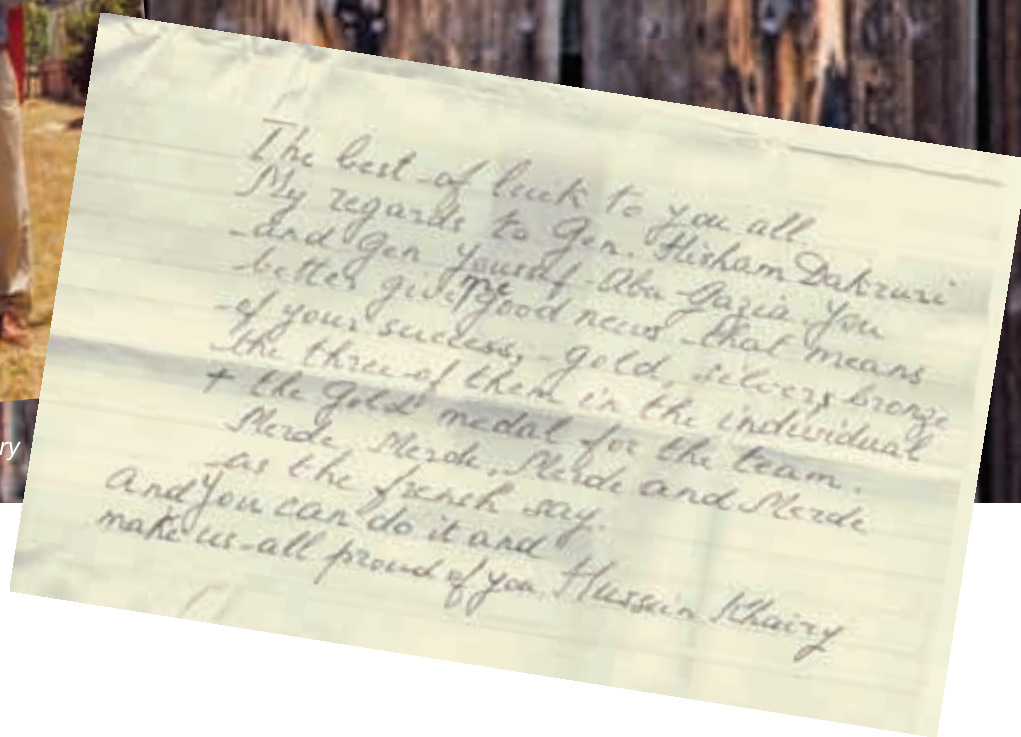 The best of luck to you all.
My regards to Gen. Hisham Dakruri
and Gen. Youssef Abu Gazia you
better give me good news that means
of your success, gold, silver, bronze
the three of them in the individual
+ the gold medal for the team.
Merde, Merde, Merde and Merde
as the french say.
And you can do it and
make us all proud of you. Hussein Khairy
ry